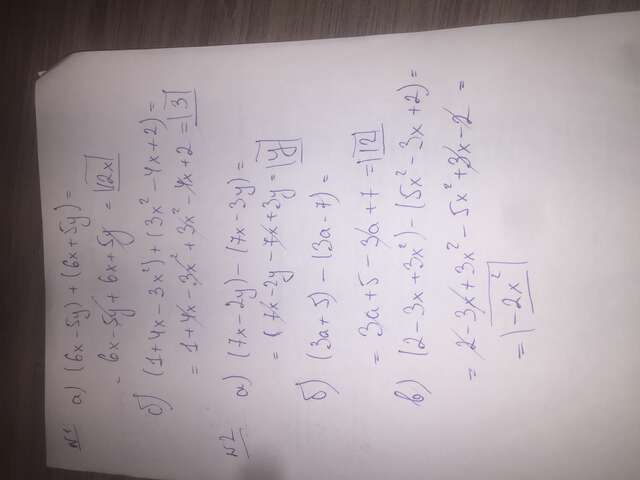 №1
а) (6x-5y)+(6x+5y)=
= 6x-5y+6x+5y = 12x
б) (1+4x-3x²)+(3x²-4x+2)=
= 1+4x-3x²+3x²-4x+2 = 3
№2
а) (7x-2y)-(7x-3y)=
= (7x-2y-7x+3y= y
б) (3a+5)-(3a-7)=
= 3a+5-3a+7 = 12
в) (2-3x+3x²)-(5x²-3x+2)=
= 2-3x+3x²-5x²+3x-2 =
= -2x²